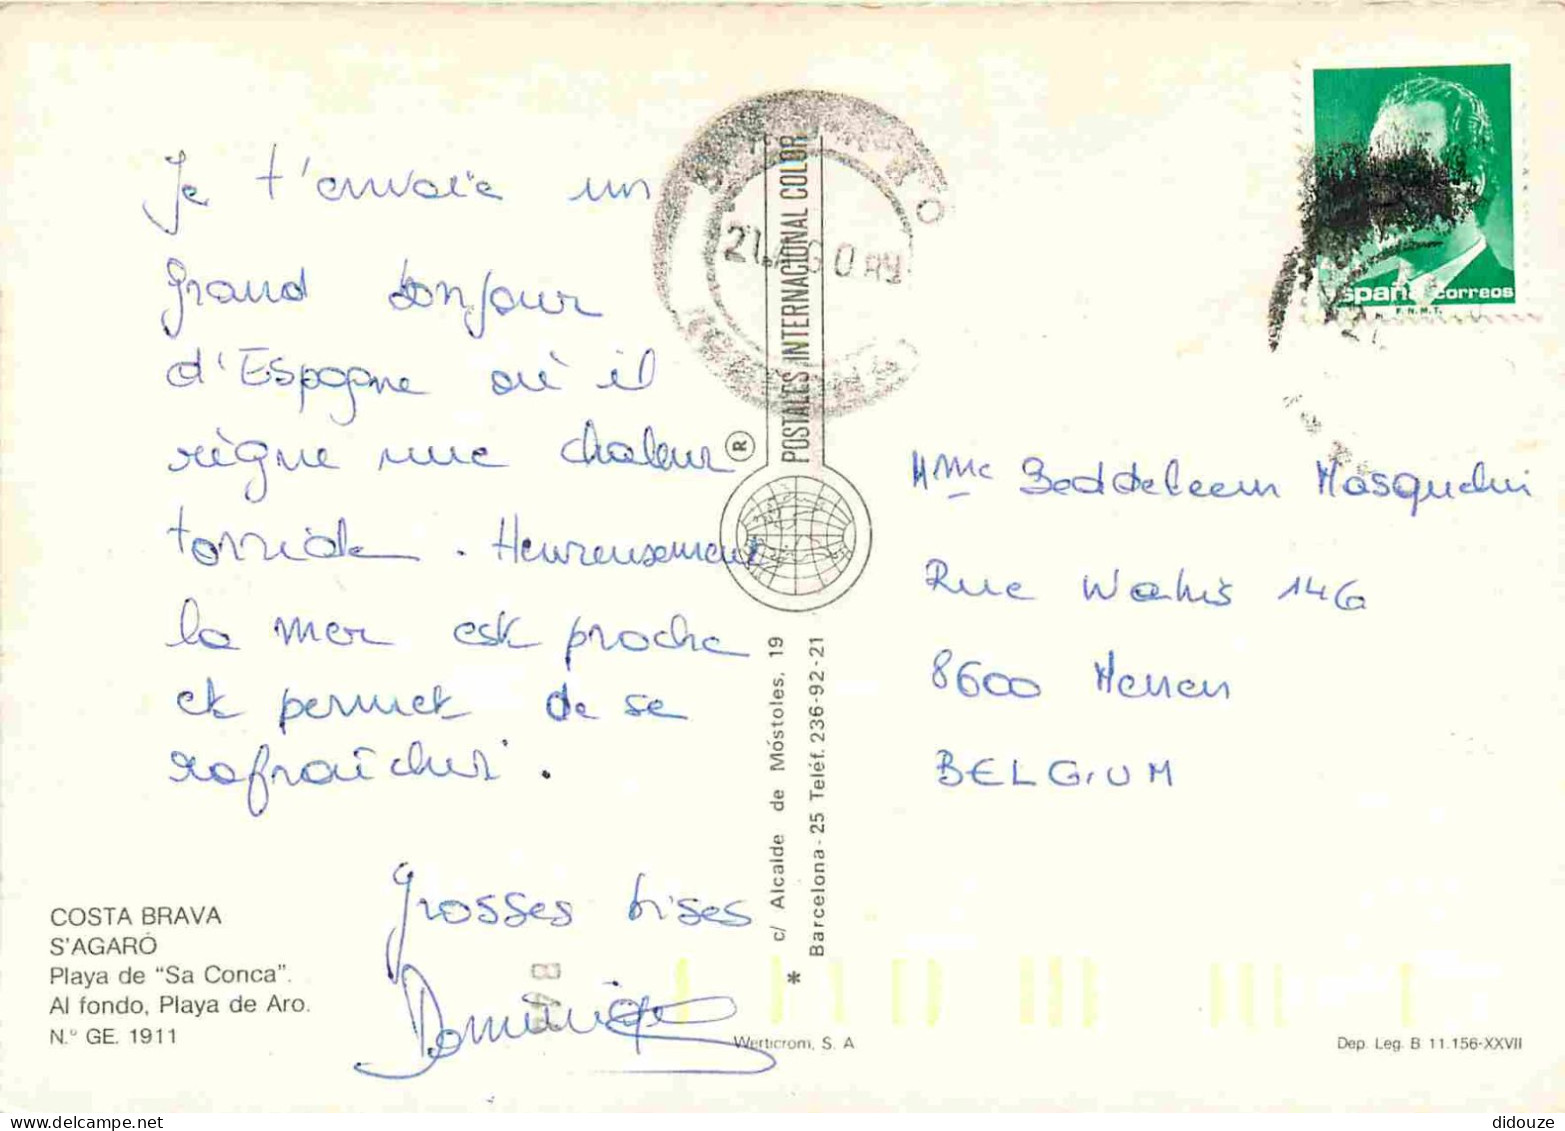 Je t'envoie un
grand bonjour
d'Espagne où il
règne une chaleur
torride. Heureusement
la mer est proche
et permet de se
rafraîchir.
Grosses bises
Dominique
COSTA BRAVA
S'AGARÓ
Playa de "Sa Conca".
Al fondo, Playa de Aro.
N.º GE. 1911
POSTALES INTERNACIONAL COLOR
R
c/ Alcalde de Móstoles, 19
Barcelona-25 Teléf. 236-92-21
*
Werticrom, S. A
España correos
F.N.M.T.
Mme
Rue 146
8600 Menen
BELGIUM
Dep. Leg. B 11.156-XXVII
didouze